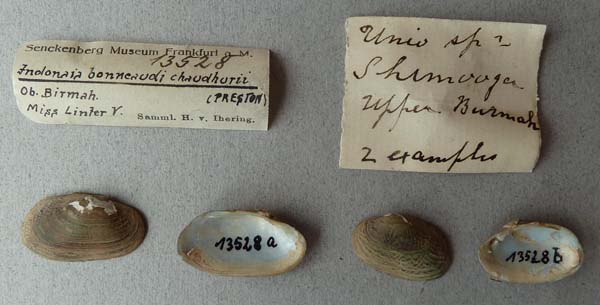 Senckenberg Museum Frankfurt a. M.
13528
Indonaia bonneaudi chaudhurii
(PRESTON)
Ob. Birmah.
Miss Linter V.
Samml. H. v. Ihering.
Unio sp⁠ⁿ
Shemooga
Upper Burmah
2 examples
13528 a
13528 b